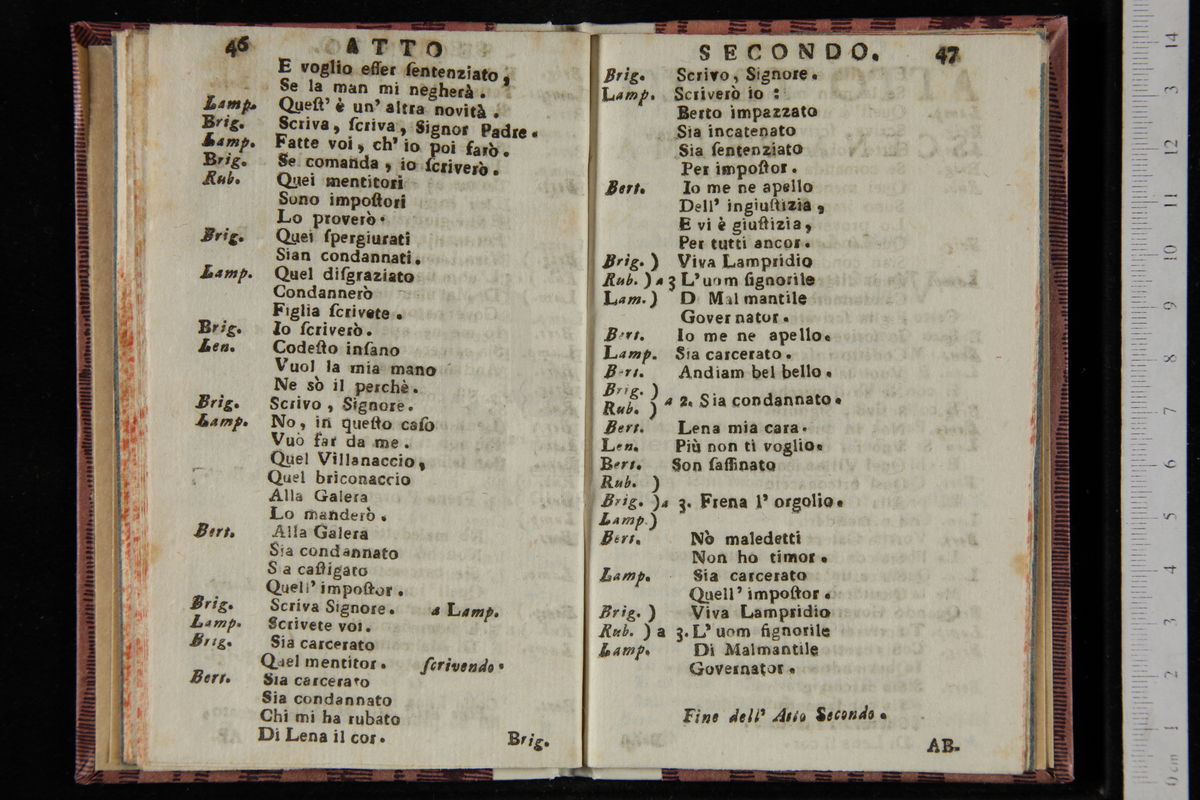 46 ATTO
E voglio eſſer ſentenziato,
Se la man mi negherà.
Lamp. Queſt' è un' altra novità.
Brig. Scriva, ſcriva, Signor Padre.
Lamp. Fatte voi, ch' io poi farò.
Brig. Se comanda, io ſcriverò.
Rub. Quei mentitori
Sono impoſtori
Lo proverò.
Brig. Quei ſpergiurati
Sian condannati.
Lamp. Quel diſgraziato
Condannerò
Figlia ſcrivete.
Brig. Io ſcriverò.
Len. Codeſto inſano
Vuol la mia mano
Ne sò il perchè.
Brig. Scrivo, Signore.
Lamp. No, in queſto caſo
Vuò far da me.
Quel Villanaccio,
Quel briconaccio
Alla Galera
Lo manderò.
Bert. Alla Galera
Sia condannato
S a caſtigato
Quell' impoſtor.
Brig. Scriva Signore. a Lamp.
Lamp. Scrivete voi.
Brig. Sia carcerato
Quel mentitor. ſcrivendo.
Bert. Sia carcerato
Sia condannato
Chi mi ha rubato
Di Lena il cor.
Brig.
SECONDO. 47
Brig. Scrivo, Signore.
Lamp. Scriverò io :
Berto impazzato
Sia incatenato
Sia ſentenziato
Per impoſtor.
Bert. Io me ne apello
Dell' ingiuſtizia,
E vi è giuſtizia,
Per tutti ancor.
Brig. ) Viva Lampridio
Rub. ) a 3 L'uom ſignorile
Lam. ) D Mal mantile
Governator.
Bert. Io me ne apello.
Lamp. Sia carcerato.
Bert. Andiam bel bello.
Brig. )
Rub. ) a 2. Sia condannato.
Bert. Lena mia cara.
Len. Più non ti voglio.
Bert. Son ſaſſinato
Rub. )
Brig. )a 3. Frena l' orgolio.
Lamp.)
Bert. Nò maledetti
Non ho timor.
Lamp. Sia carcerato
Quell' impoſtor.
Brig. ) Viva Lampridio
Rub. ) a 3. L' uom ſignorile
Lamp. Di Malmantile
Governator.
Fine dell' Atto Secondo.
AB-
14
13
12
11
10
9
8
7
6
5
4
3
2
1
0 cm